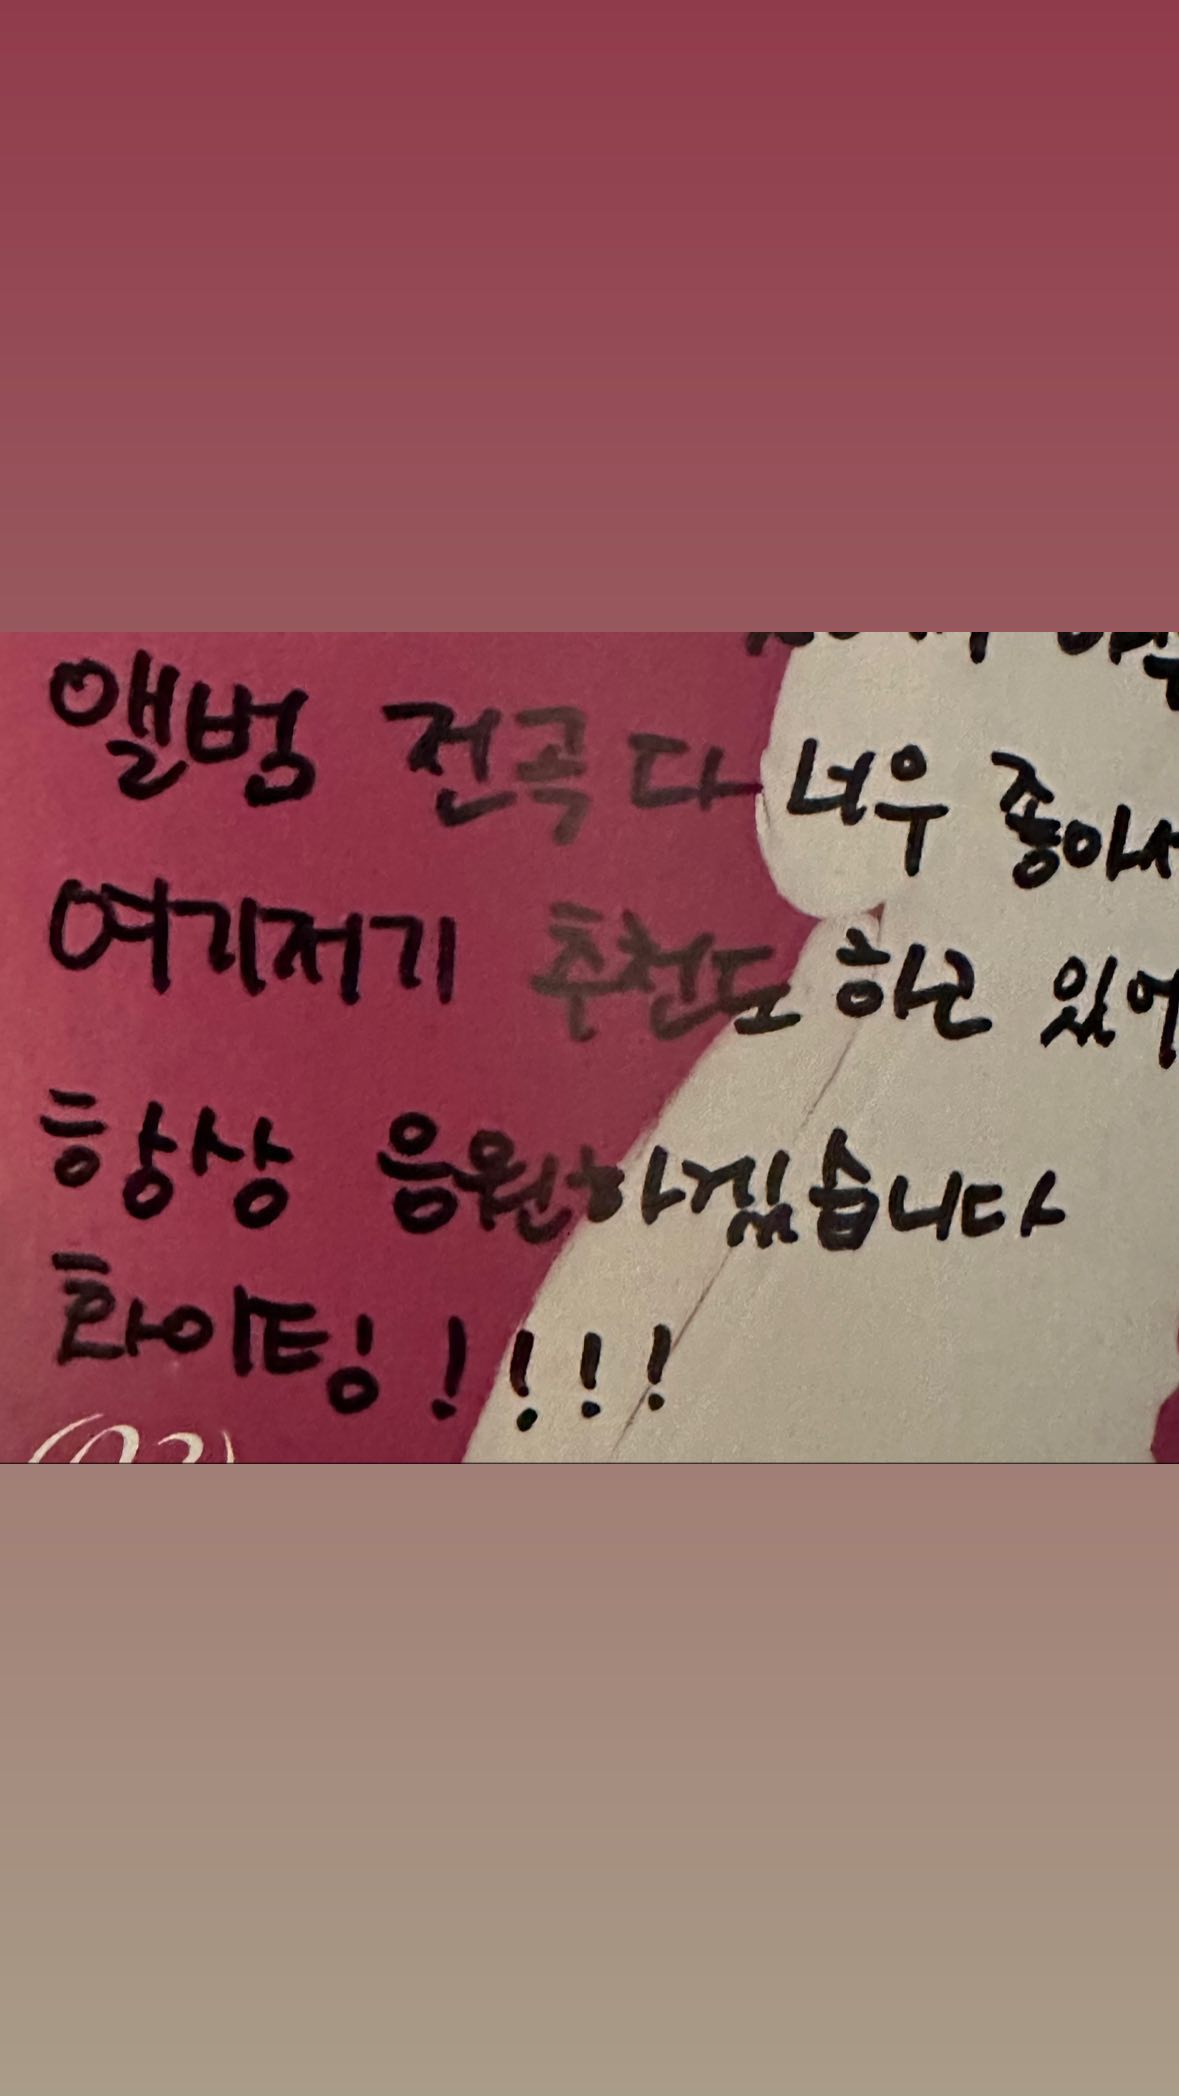 앨범 전곡 다 너우 좋아서
여기저기 추천도 하고 있어
항상 응원하겠습니다
화이팅!!!!